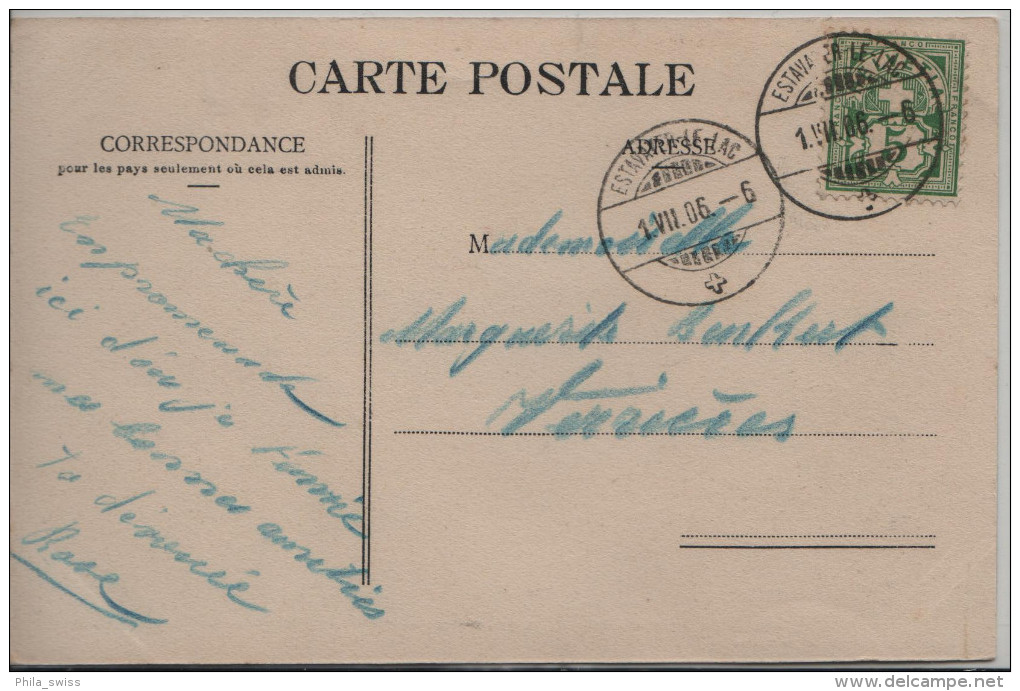 CARTE POSTALE
CORRESPONDANCE
pour les pays seulement où cela est admis.
Ma chère
En promenade
ici d'où je t'envoie
mes bonnes amitiés
Ta dévouée
Rose
ADRESSE
Mademoiselle
Marguerite
Verrières
ESTAVAYER-LE-LAC
1.VII.06.-6
ESTAVAYER-LE-LAC
1.VII.06.-6
FRANCO
FRANCO
Phila_swiss
www.delcampe.net